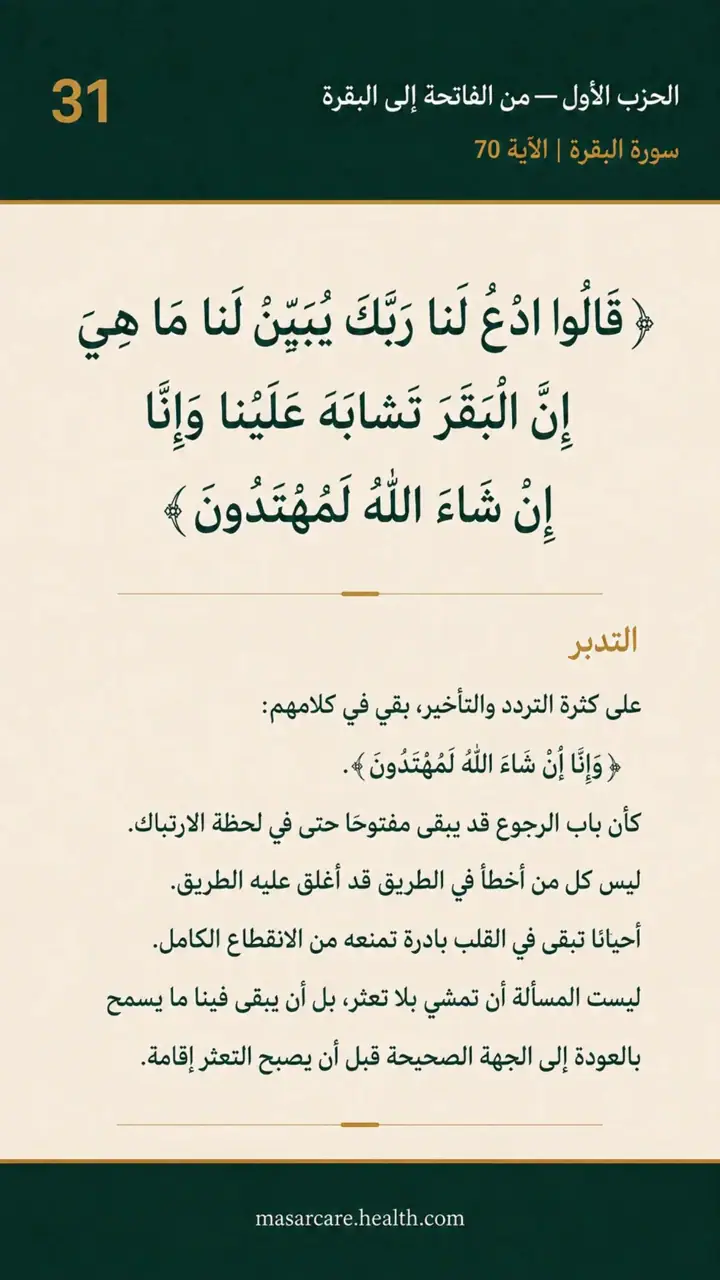 31
الحزب الأول — من الفاتحة إلى البقرة
سورة البقرة | الآية 70
﴿ قَالُوا ادْعُ لَنا رَبَّكَ يُبَيِّنْ لَنا مَا هِيَ
إِنَّ الْبَقَرَ تَشابَهَ عَلَيْنا وَإِنَّا
إِنْ شَاءَ اللهُ لَمُهْتَدُونَ ﴾
التدبر
على كثرة التردد والتأخير، بقي في كلامهم:
﴿ وَإِنَّا أِنْ شَاءَ اللهُ لَمُهْتَدُونَ ﴾.
كأن باب الرجوع قد يبقى مفتوحًا حتى في لحظة الارتباك.
ليس كل من أخطأ في الطريق قد أغلق عليه الطريق.
أحيانًا تبقى في القلب بادرة تمنعه من الانقطاع الكامل.
ليست المسألة أن تمشي بلا تعثر، بل أن يبقى فينا ما يسمح
بالعودة إلى الجهة الصحيحة قبل أن يصبح التعثر إقامة.
masarcare.health.com